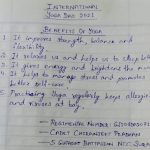 INTERNATIONAL
YOGA DAY 2021
BENEFITS OF YOGA
1. It improves strength, balance and
flexibility.
2. It relaxes us and helps us to sleep better
3. It gives energy and brightens the mood
4. It helps to manage stress and promotes
better self-care.
5. Practicing Yoga regularly keeps allergies
and viruses at bay.
- REGIMENTAL NUMBER:
- CADET CHERANJEEV PRADHAN
- 5 GUJARAT BATTALION NCC SURAT